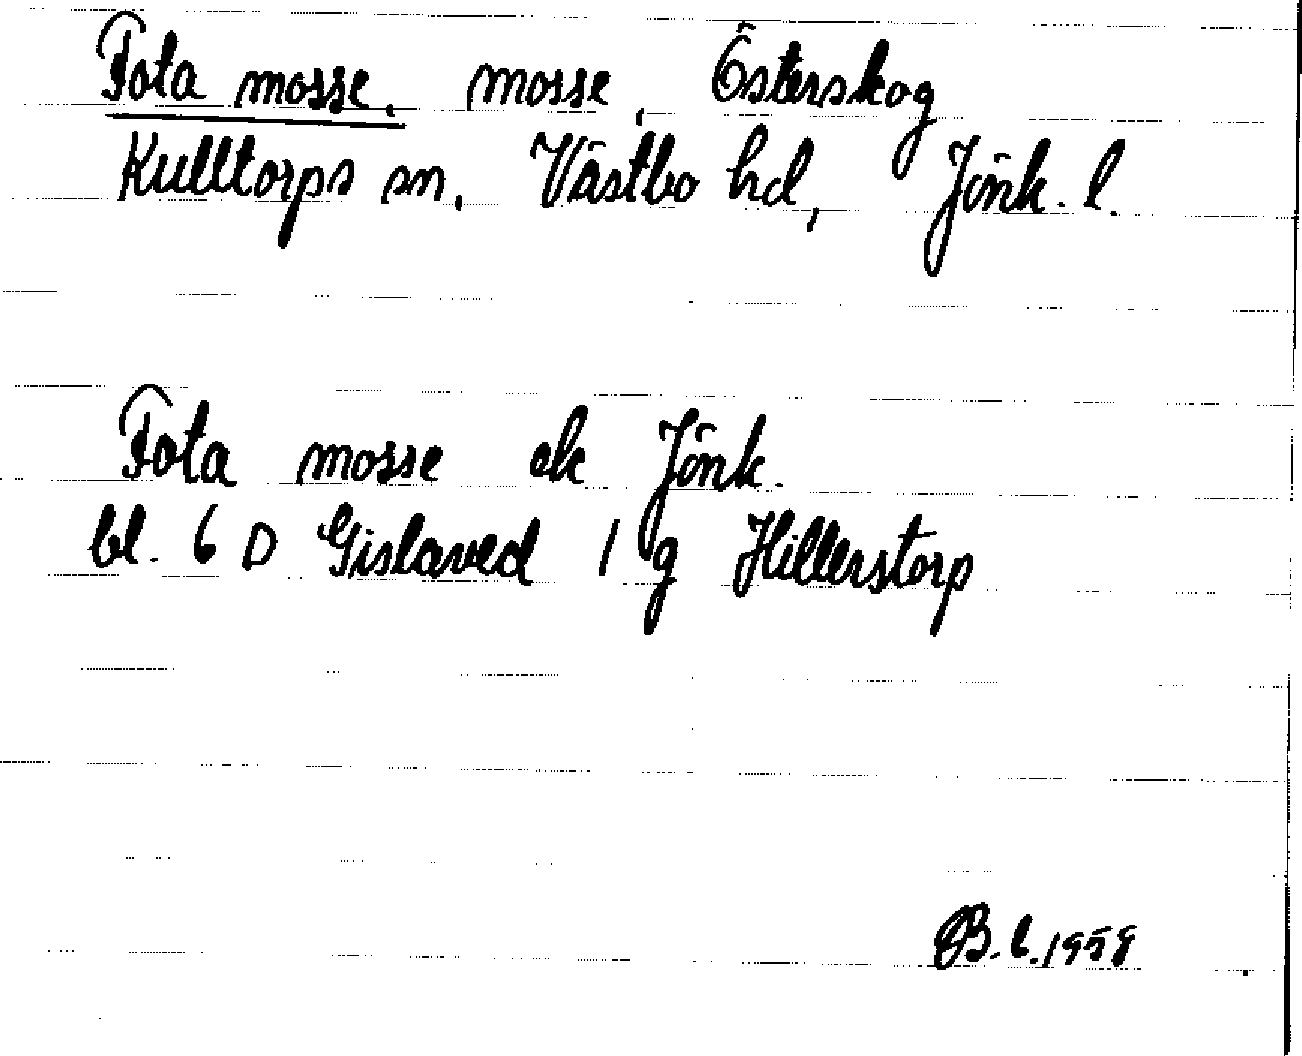 Fota mosse, mosse, Österskog
Kulltorps sn, Västbo hd, Jönk. l.
Fota mosse ek Jönk.
bl. 6 D Gislaved 1 g Hillerstorp
B.L.1958